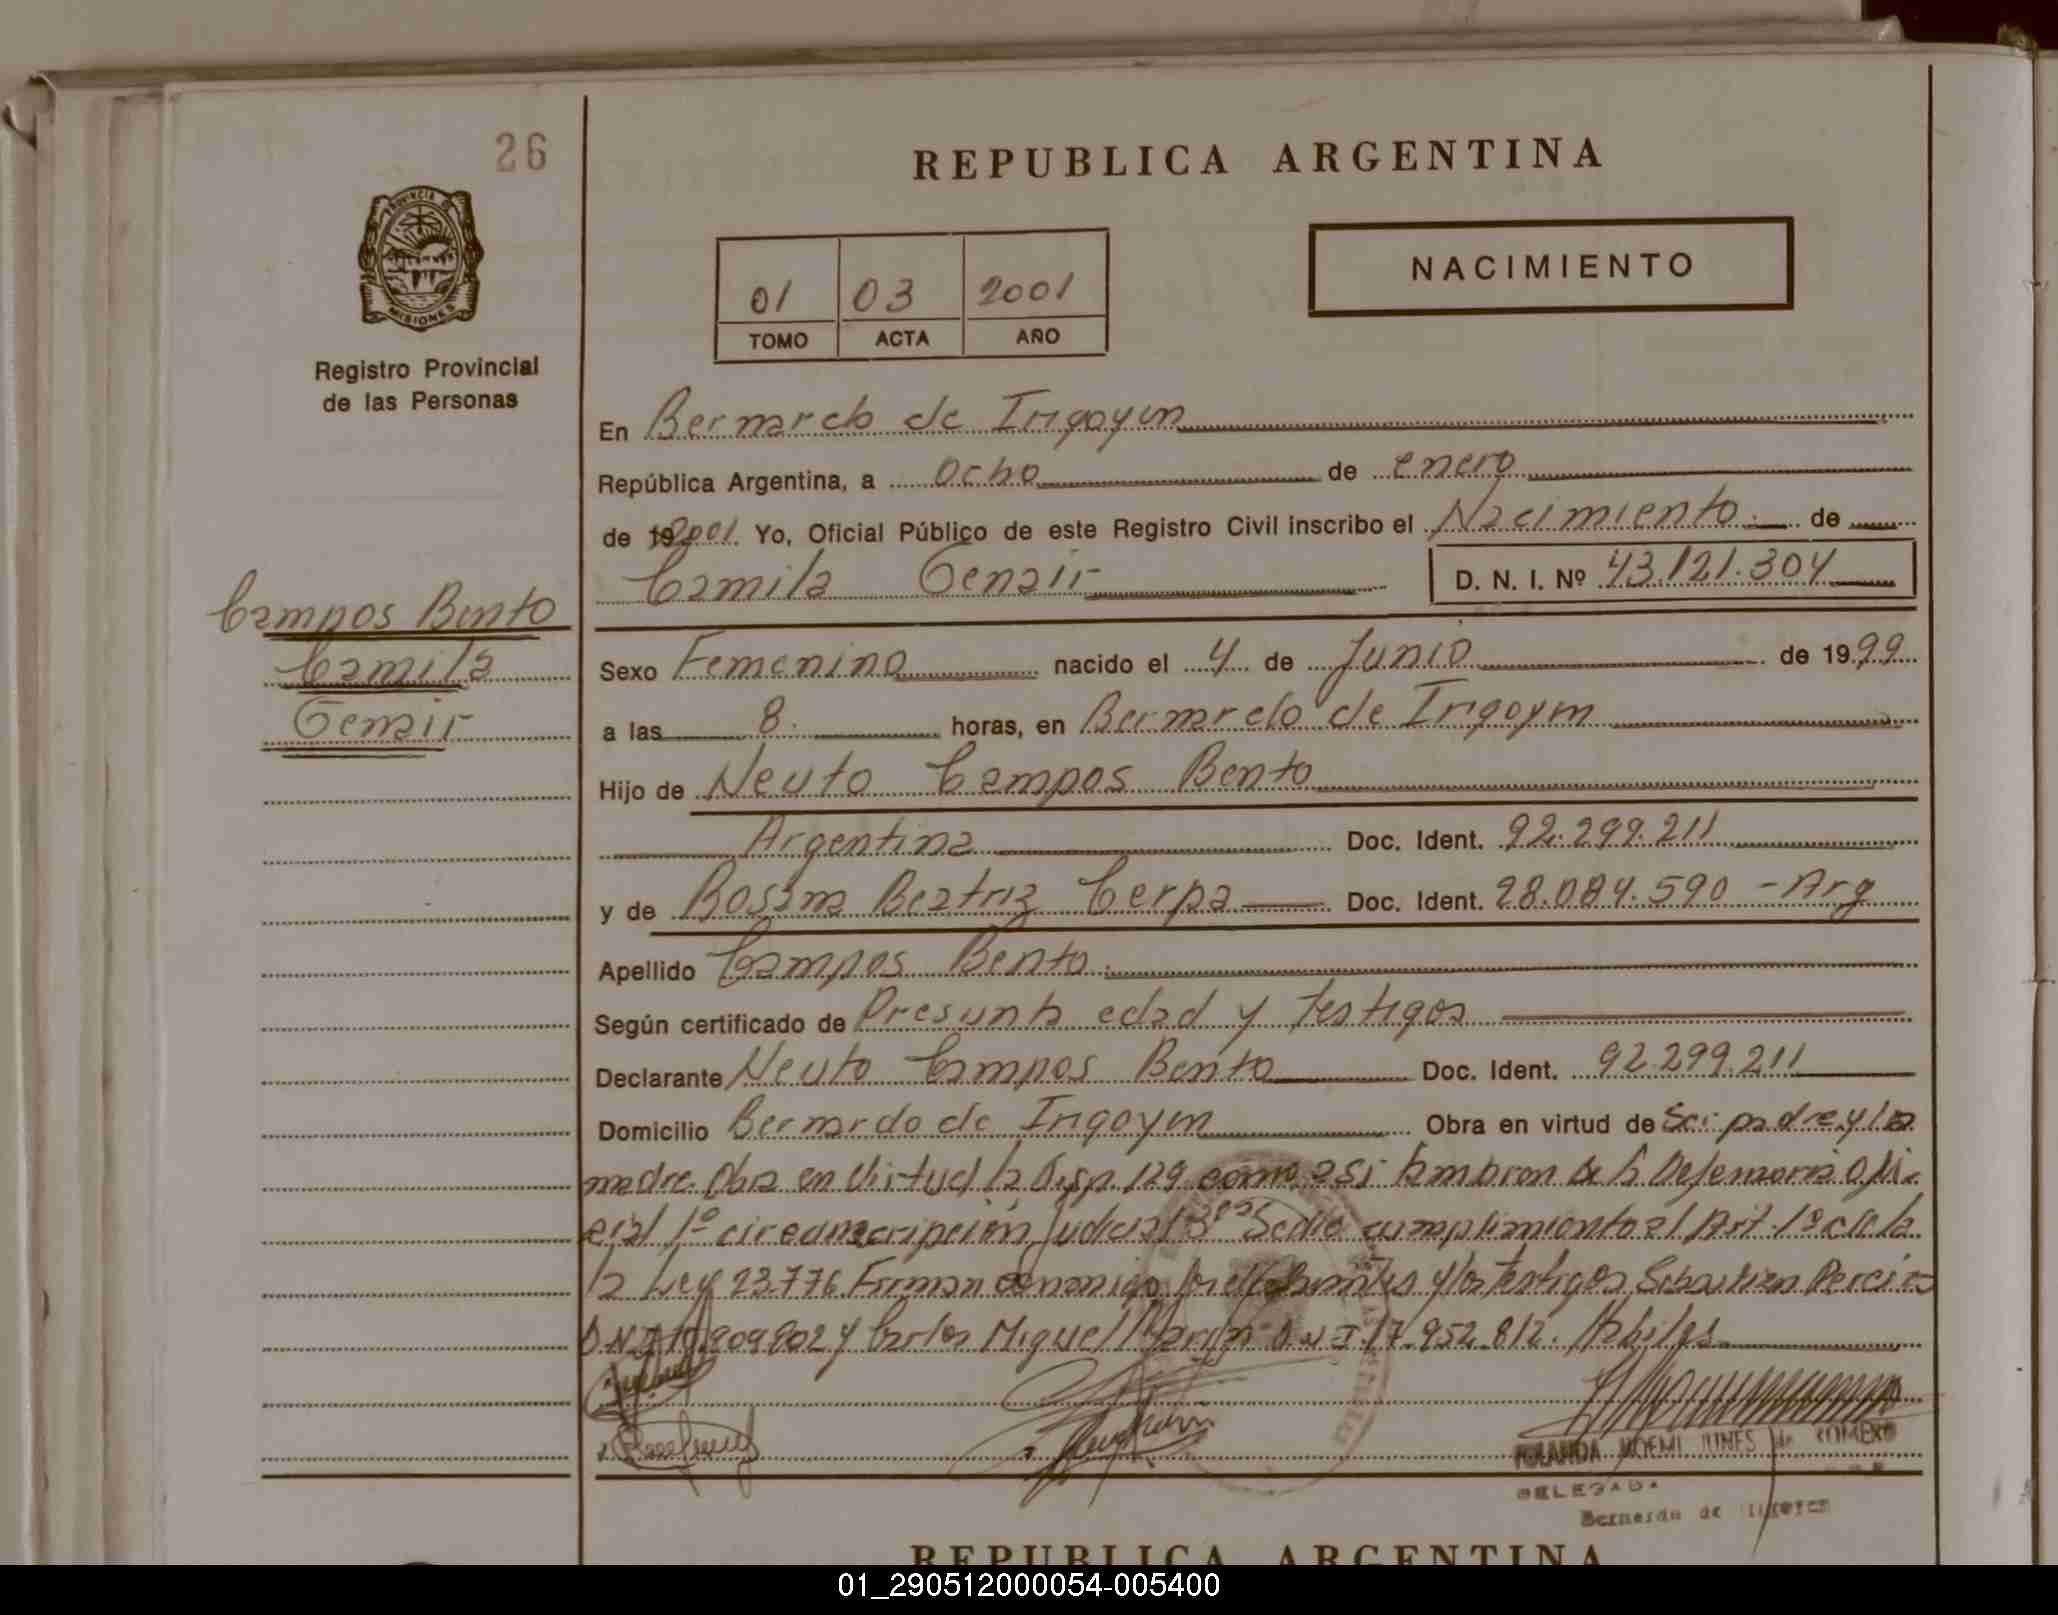 26
REPUBLICA ARGENTINA
PROVINCIA DE
MISIONES
Registro Provincial
de las Personas
01 03 2001
TOMO ACTA AÑO
NACIMIENTO
En Bernardo de Irigoyen
República Argentina, a ocho de enero
de 192001. Yo, Oficial Público de este Registro Civil inscribo el Nacimiento. de
Camila Genair D. N. I. Nº 43.121.304
Campos Bento
Camila
Genair
Sexo Femenino nacido el 4 de Junio de 1999
a las 8. horas, en Bernardo de Irigoyen
Hijo de Neuto Campos Bento
Argentina Doc. Ident. 92.299.211
y de Rosana Beatriz Cerpa Doc. Ident. 28.084.590 - Arg
Apellido Campos Bento.
Según certificado de Presunta edad y testigos
Declarante Neuto Campos Bento Doc. Ident. 92.299.211
Domicilio Bernardo de Irigoyen Obra en virtud de Ser padre y la
madre. Obra en virtud la Disp. 129 como asi tambien de la Defensoria Ofi-
cial 1º circunscripción Judicial 3ra Sede cumplimiento al Art. 1º de la
la Ley 23.776. Firman los testigos Sebastian
D.N.I. y Carlos Miguel D.N.I. 17.952.812. Habiles.
YOLANDA NOEMI JUNES de ROMERO
DELEGADA
Bernardo de Irigoyen
REPUBLICA ARGENTINA
01_290512000054-005400